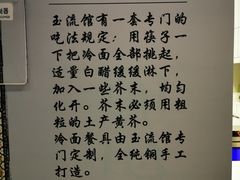 玉流馆有一套专门的
吃法规定：用筷子一
下把冷面全部挑起，
适量白醋缓缓淋下，
加入一些芥末，均匀
化开。芥末必须用粗
粒的土产黄芥。
冷面餐具由玉流馆专
门定制，全纯铜手工
打造。